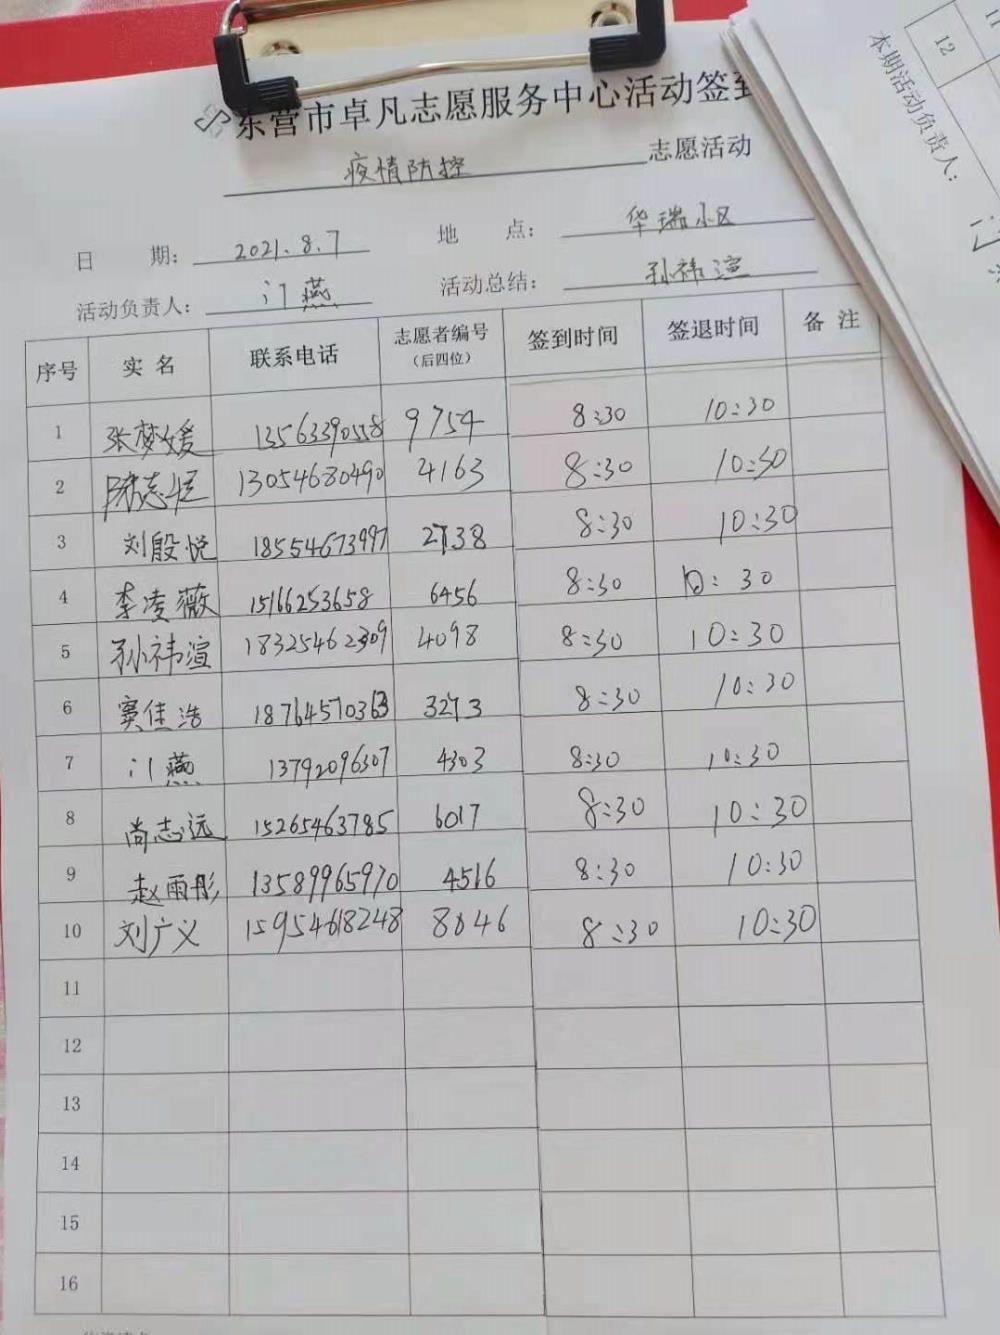 东营市卓凡志愿服务中心活动签到
疫情防控 志愿活动
日 期: 2021.8.7 地 点: 华瑞小区
活动负责人: 门燕 活动总结: 孙祎渲
序号 实 名 联系电话 志愿者编号(后四位) 签到时间 签退时间 备 注
1 张梦媛 13563390558 9754 8:30 10:30
2 陈志恒 13054680490 4163 8:30 10:30
3 刘殷悦 18554673997 2738 8:30 10:30
4 李凌薇 15166253658 6456 8:30 10:30
5 孙祎渲 18325462309 4098 8:30 10:30
6 窦佳浩 18764570363 3273 8:30 10:30
7 门燕 13792096307 4303 8:30 10:30
8 尚志远 15265463785 6017 8:30 10:30
9 赵雨彤 13589965970 4516 8:30 10:30
10 刘广义 15954618248 8846 8:30 10:30
11
12
13
14
15
16
12
本期活动负责人: